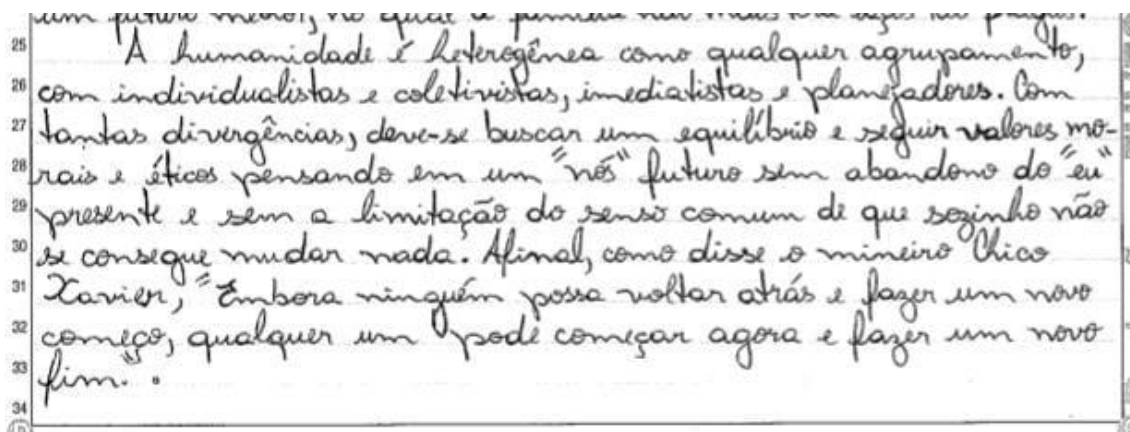 um futuro melhor, no qual a família não mais
25 A humanidade é heterogênea como qualquer agrupamento,
26 com individualistas e coletivistas, imediatistas e planejadores. Com
27 tantas divergências, deve-se buscar um equilíbrio e seguir valores mo-
28 rais e éticos pensando em um "nós" futuro sem abandono do "eu"
29 presente e sem a limitação do senso comum de que sozinho não
30 se consegue mudar nada. Afinal, como disse o mineiro Chico
31 Xavier, "Embora ninguém possa voltar atrás e fazer um novo
32 começo, qualquer um pode começar agora e fazer um novo
33 fim.".
34